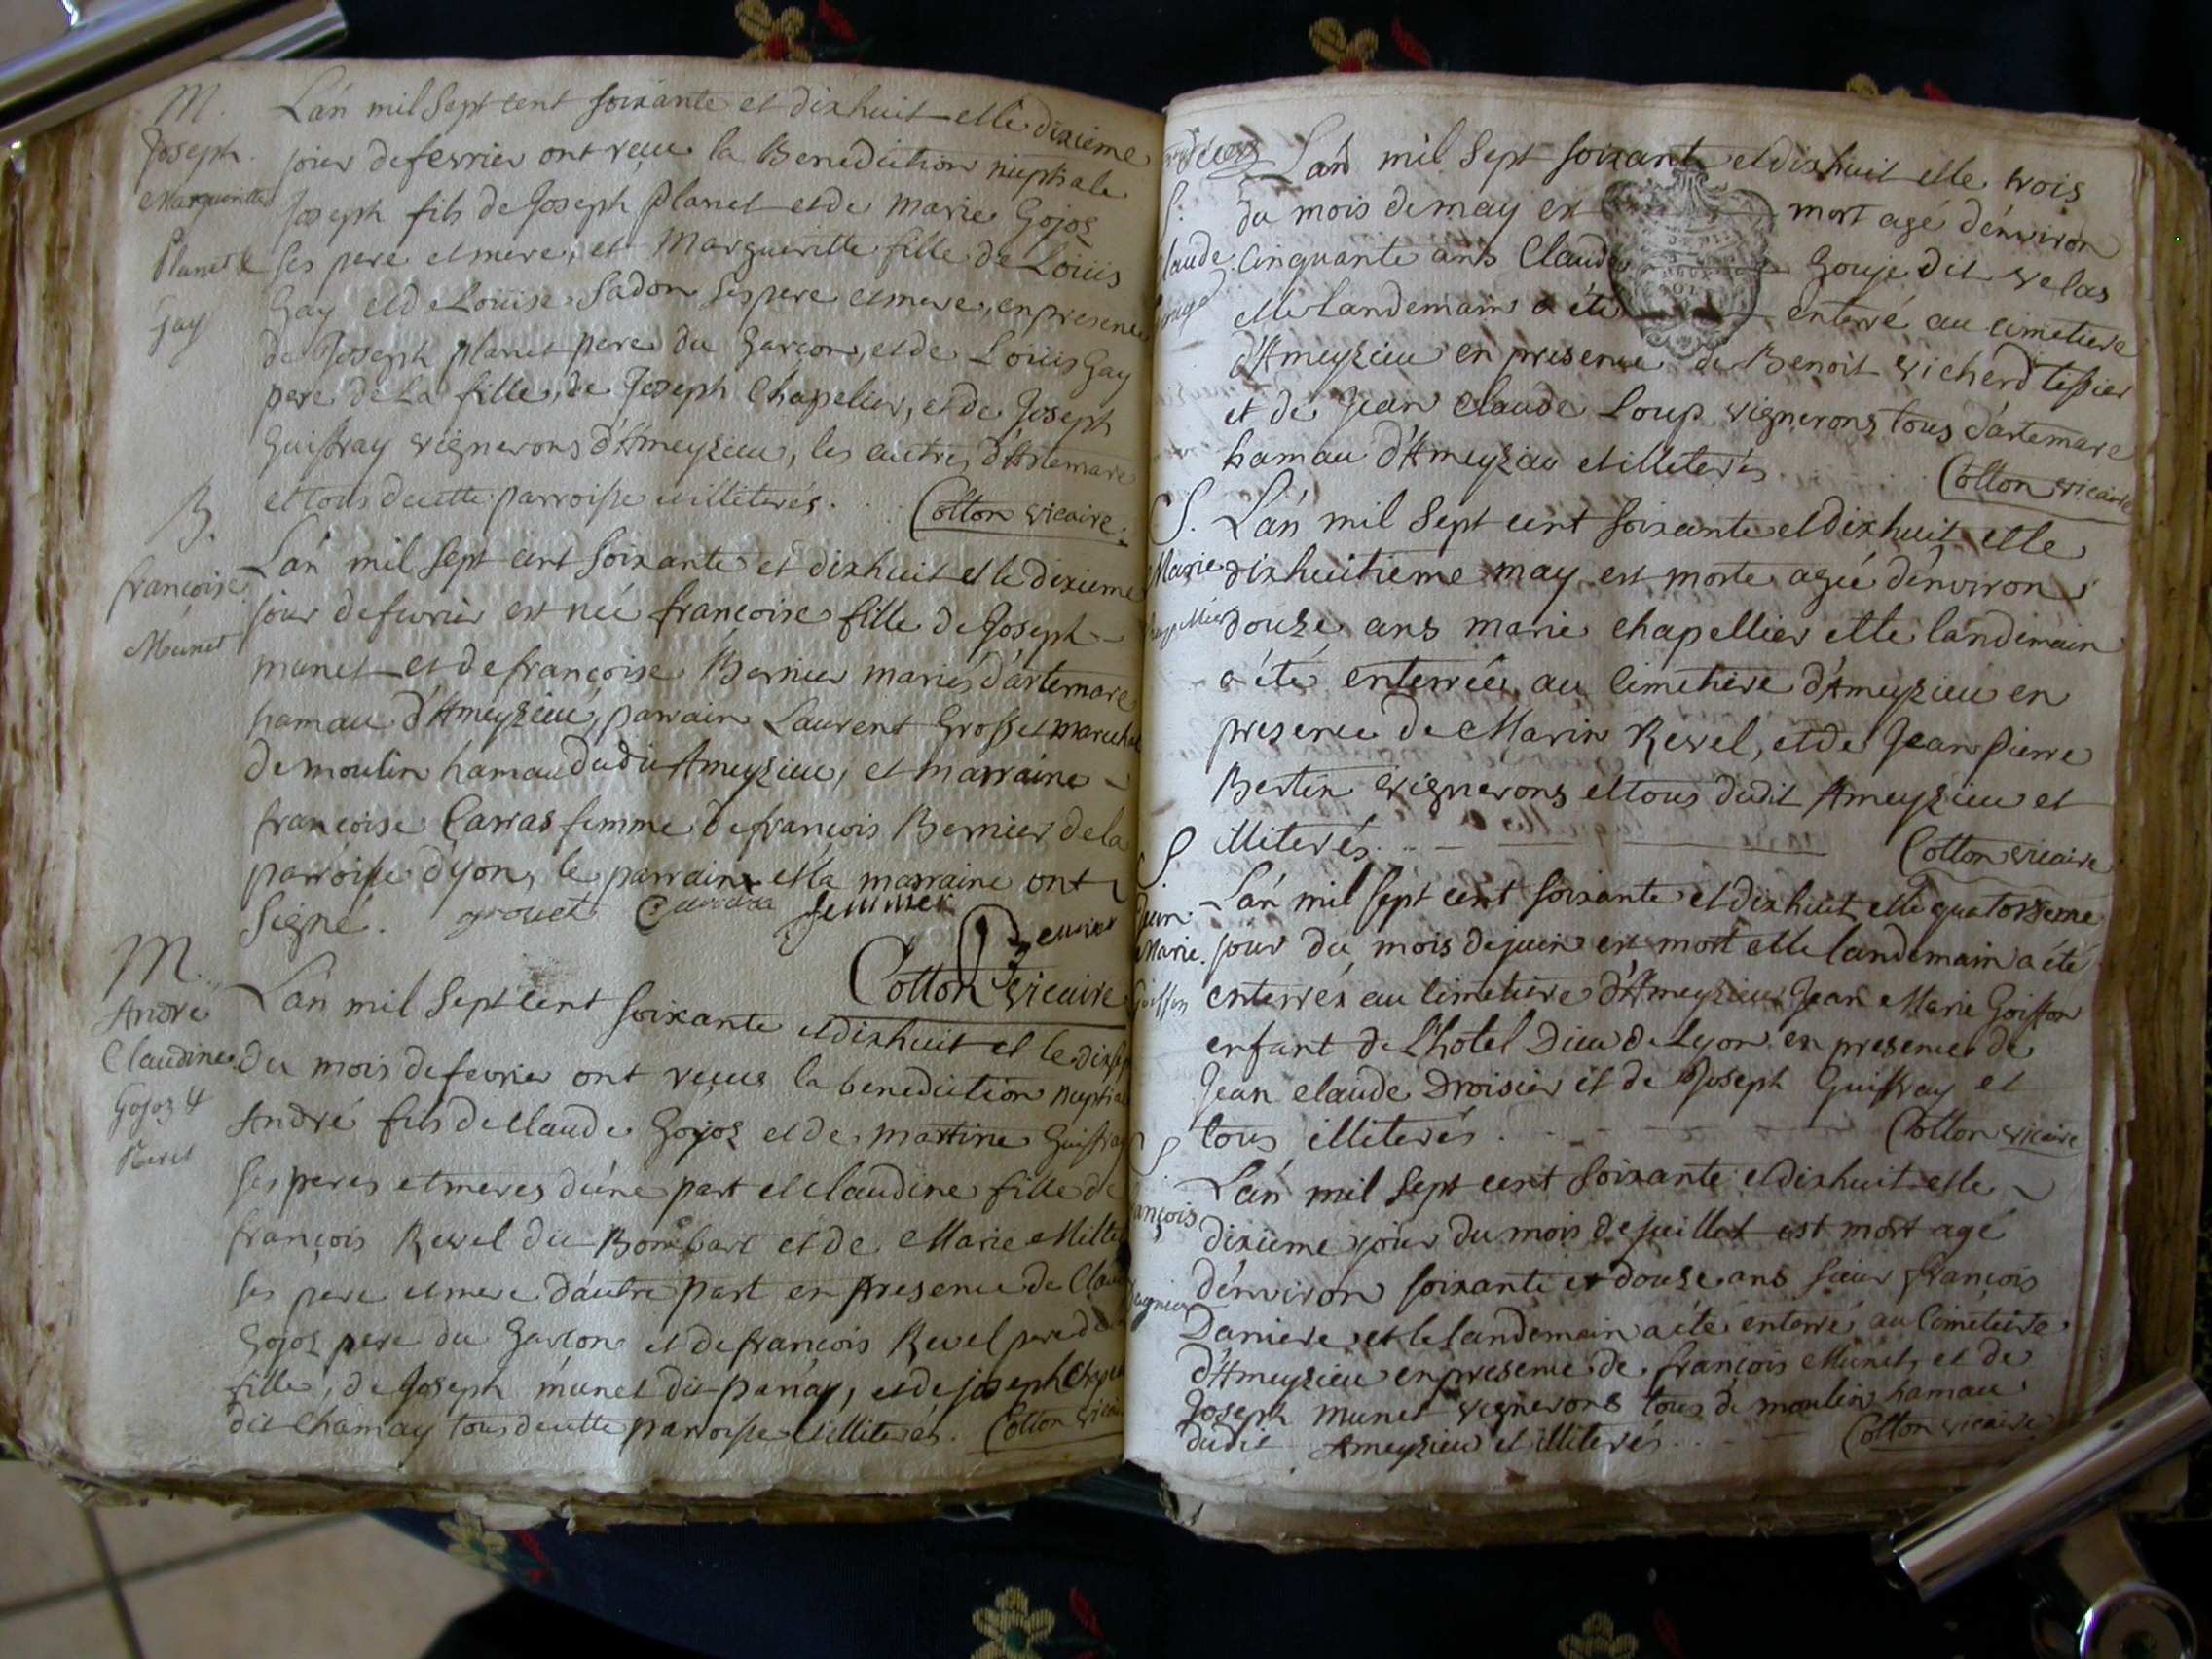 M.
Joseph
Margueritte
Planet &
Gay
L'an mil Sept cent soixante et dixhuit et le dixieme
jour de fevrier ont reçu la Benediction nuptiale
Joseph fils de Joseph planet et de marie Gojoz
ses pere et mere, et Margueritte fille de Loüis
Gay et de Louise Sadon ses pere et mere, en presence
de Joseph planet pere du Garçon, et de Loüis Gay
pere de La fille, de Joseph Chapelier, et de Joseph
Guiffray vignerons d'Ameyzieu, les autres d'Artemare
et tous de cette parroisse et illiterés. Cotton vicaire.
B.
françoise
Munet
L'an mil sept cent soixante et dixhuit et le dixieme
jour de fevrier est née françoise fille de Joseph
munet et de françoise Bernier mariés d'artemare
hamau d'Ameyzieu, parrain Laurent Grosset
de moulin hamau dudit Ameyzieu, et marraine
françoise Carras femme de françois Bernier de la
parroisse dyon, le parrain et la marraine ont
Signé. femme
Bernier
Cotton vicaire
M.
André
Claudine
Gojoz &
Revel
L'an mil Sept cent soixante et dixhuit et le
du mois de fevrier ont reçus la benediction
André fils de Claude Gojoz et de martine
ses peres et meres d'une part et claudine fille de
françois Revel dit Bombart et de Marie
ses pere et mere d'autre part en presence de
Gojoz pere du Garçon et de françois Revel pere de
fille, de Joseph munet dit parray, et de joseph
dit Chamay tous de cette parroisse et illiterés. Cotton
S.
L'an mil Sept soixante et dixhuit et le trois
du mois de may est mort agé d'environ
Cinquante ans Claude Gouje dit velas
et le landemain a été enterré au cimetiere
d'Ameyzieu en presence de Benoit vicherd tissier
et de Jean Claude Loup vignerons tous d'artemare
hamau d'Ameyzieu et illiterés Cotton vicaire
S.
Marie
L'an mil Sept cent soixante et dixhuit et le
dixhuitieme may est morte agée d'environ
douze ans marie chapellier et le landemain
a été enterrée au cimetiere d'Ameyzieu en
presence de Marin Revel, et de Jean pierre
Bertin vignerons et tous dudit Ameyzieu et
illiterés. Cotton vicaire
S
Jean
Marie
Goiffon
L'an mil sept cent soixante et dixhuit et le quatorzieme
jour du mois de juin est mort et le landemain a été
enterrés au cimetiere d'Ameyzieu Jean Marie Goiffon
enfant de L'hotel Dieu de Lyon en presence de
Jean claude Droisier et de Joseph Guiffray et
tous illiterés. Cotton vicaire
S.
L'an mil Sept cent soixante et dixhuit et le
dixieme jour du mois de juillet est mort agé
d'environ soixante et douze ans sieur françois
Daniere et le landemain a été enterré au Cimetiere
d'Ameyzieu en presence de françois Munet, et de
Joseph munet vignerons tous de moulin hamau
dudit Ameyzieu et illiterés. Cotton vicaire